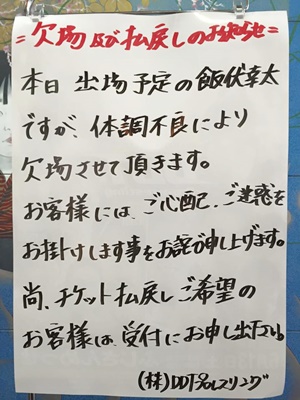 =欠場及び払戻しのお知らせ=
本日 出場予定の飯伏幸太
ですが、体調不良により
欠場させて頂きます。
お客様には、ご心配、ご迷惑を
お掛けします事をお詫び申し上げます。
尚、チケット払戻しご希望の
お客様は、受付にお申し出下さい。
(株)DDTプロレスリング